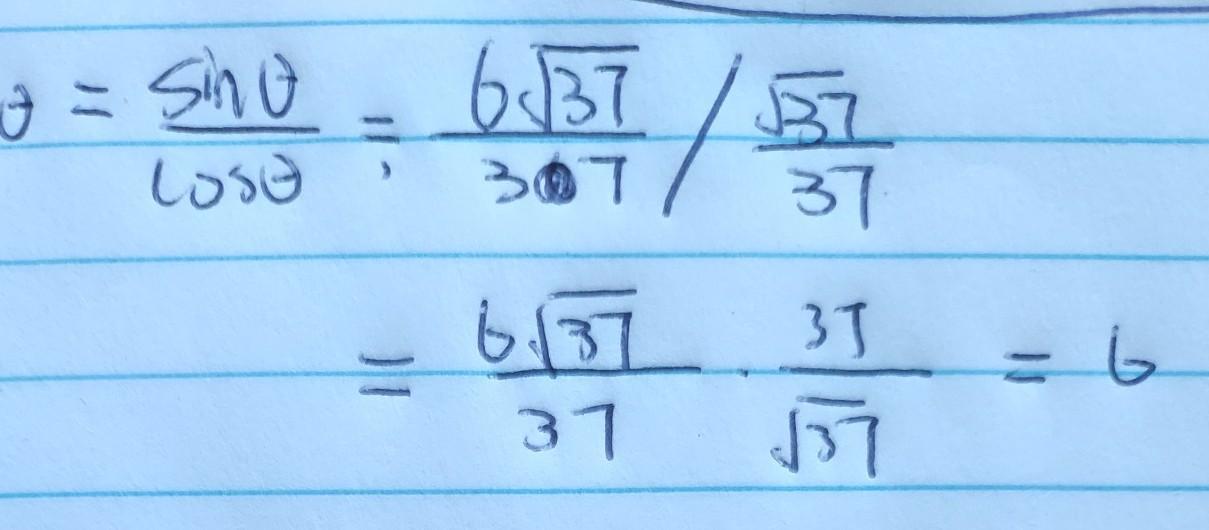 θ = sinθ/cosθ = 6√37/37 / √37/37
= 6√37/37 · 37/√37 = 6